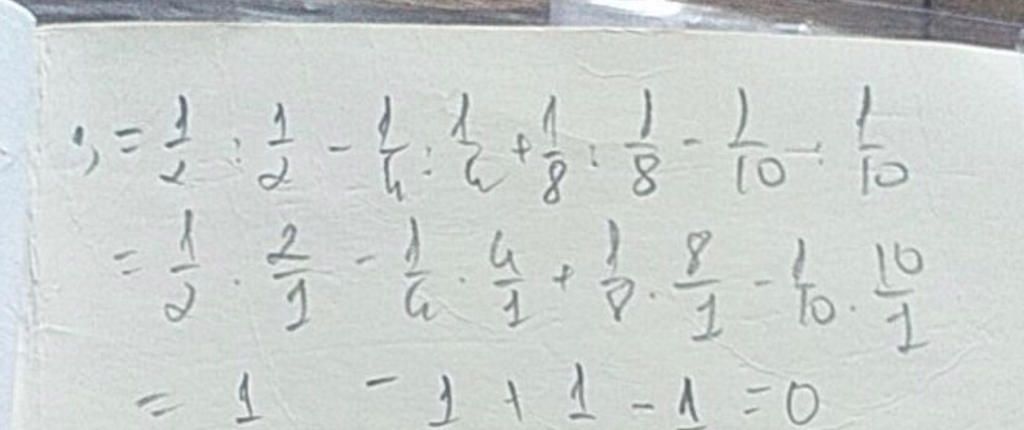 1, = 1/2 : 1/2 - 1/4 : 1/4 + 1/8 : 1/8 - 1/10 : 1/10
= 1/2 . 2/1 - 1/4 . 4/1 + 1/8 . 8/1 - 1/10 . 10/1
= 1 - 1 + 1 - 1 = 0